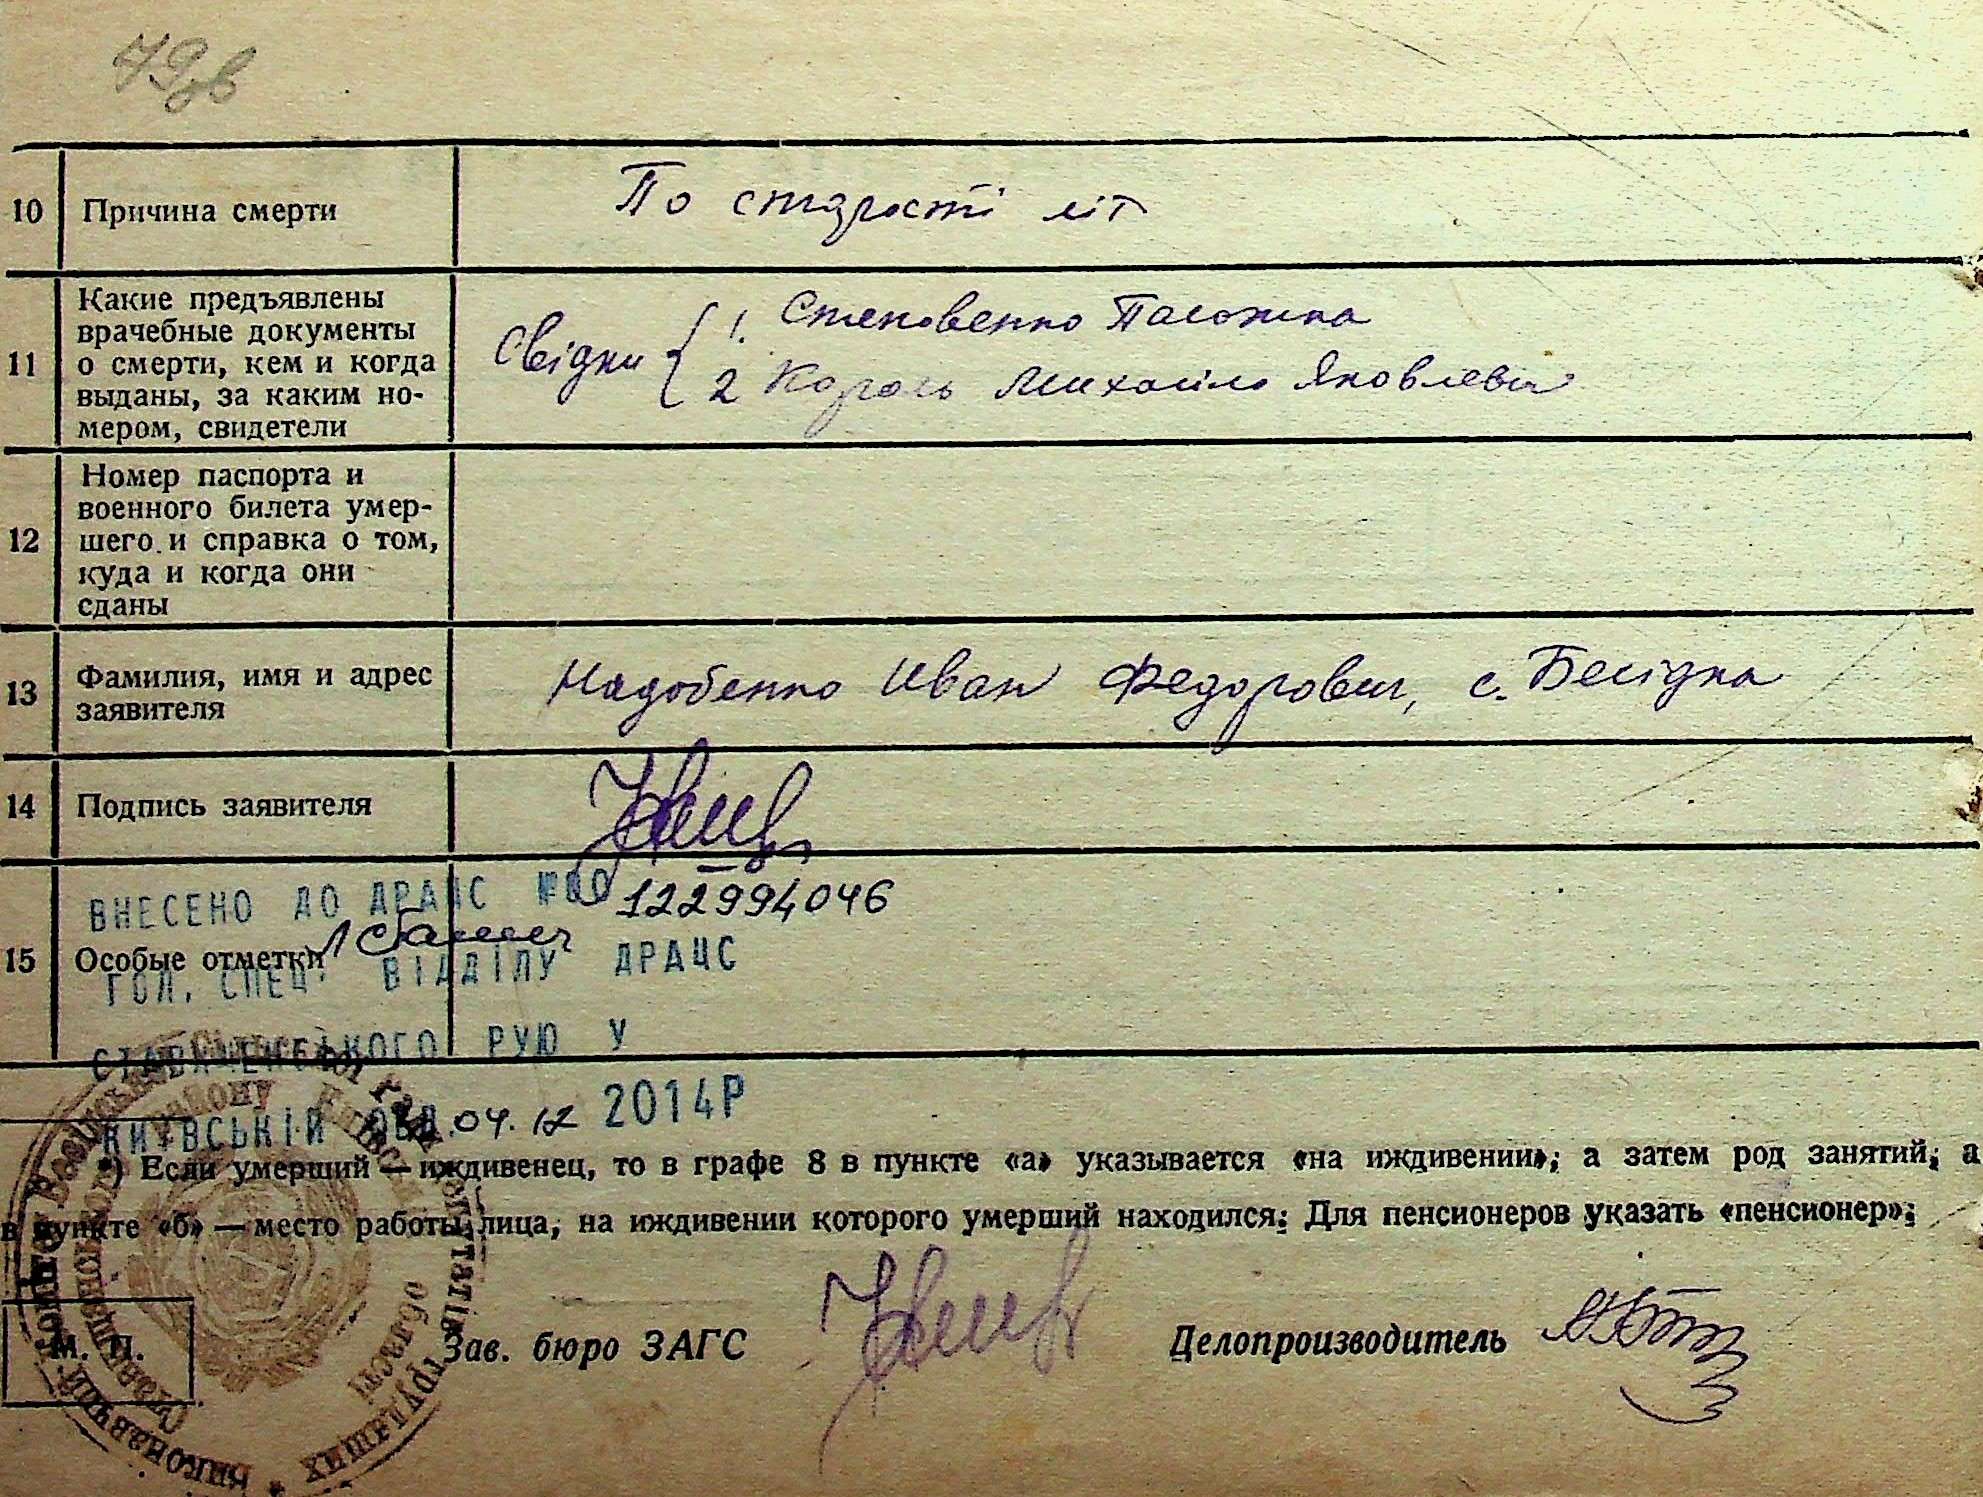 79зв
10 Причина смерти По старості літ
11 Какие предъявлены
врачебные документы
о смерти, кем и когда
выданы, за каким но-
мером, свидетели
Свідки { 1. Степовенко Палажка
2 Король Михайло Яковлевич
12 Номер паспорта и
военного билета умер-
шего и справка о том,
куда и когда они
сданы
13 Фамилия, имя и адрес
заявителя
Надобенко Иван Федорович, с. Бесідка
14 Подпись заявителя
ВНЕСЕНО ДО ДРАЦС №00122994046
15 Особые отметки
ГОЛ. СПЕЦ. ВІДДІЛУ ДРАЦС
СТАВИЩЕНСЬКОГО РУЮ У
КИЇВСЬКІЙ ОБЛ. 04.12 2014Р
*) Если умерший — иждивенец, то в графе 8 в пункте «а» указывается «на иждивении»; а затем род занятий, а
в пункте «б» — место работы лица, на иждивении которого умерший находился. Для пенсионеров указать «пенсионер».
М. П.
Зав. бюро ЗАГС
Делопроизводитель
Виконавчий комітет сільської Ради депутатів трудящих
Ставищенського району Київської області